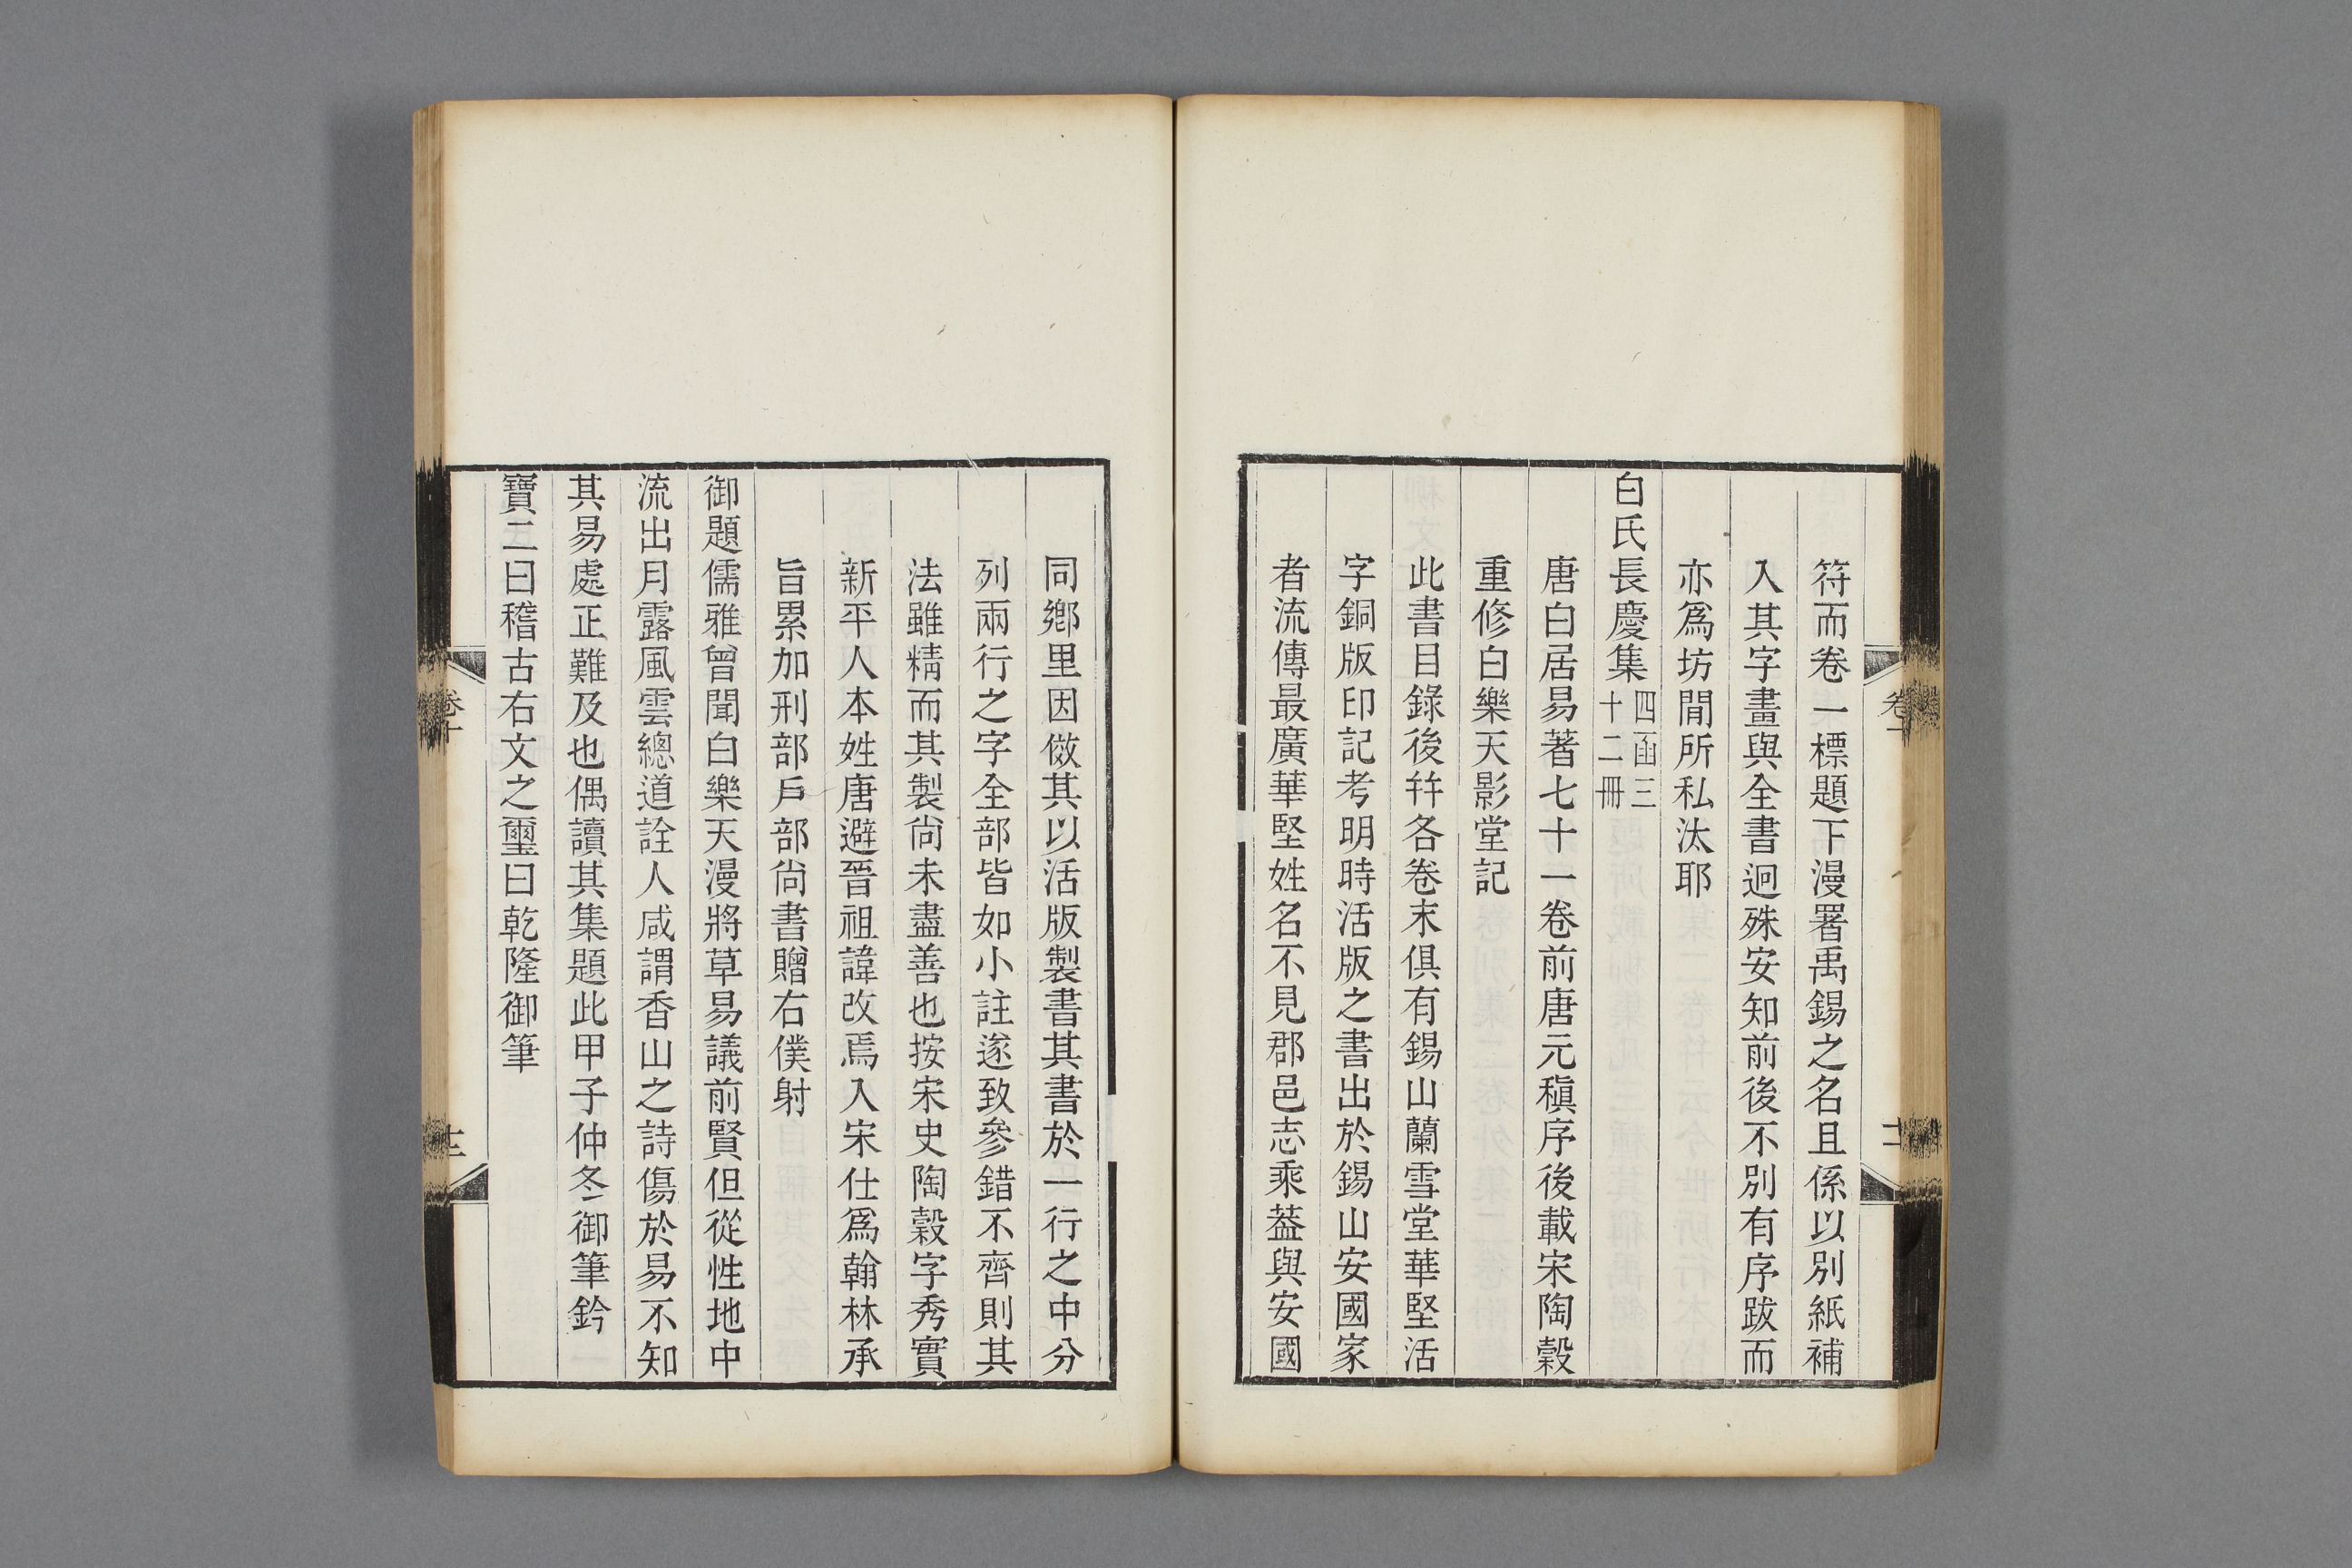 符而卷一標題下漫署禹錫之名且係以別紙補
入其字畫與全書迥殊安知前後不別有序跋而
亦爲坊閒所私汰耶
白氏長慶集四函三十二冊
唐白居易著七十一卷前唐元稹序後載宋陶穀
重修白樂天影堂記
此書目錄後幷各卷末俱有錫山蘭雪堂華堅活
字銅版印記考明時活版之書出於錫山安國家
者流傳最廣華堅姓名不見郡邑志乘葢與安國
卷十
十二
同鄉里因倣其以活版製書其書於一行之中分
列兩行之字全部皆如小註遂致參錯不齊則其
法雖精而其製尚未盡善也按宋史陶穀字秀實
新平人本姓唐避晉祖諱改焉入宋仕爲翰林承
旨累加刑部戶部尚書贈右僕射
御題儒雅曾聞白樂天漫將草易議前賢但從性地中
流出月露風雲總道詮人咸謂香山之詩傷於易不知
其易處正難及也偶讀其集題此甲子仲冬御筆鈐
寶二曰稽古右文之璽曰乾隆御筆
卷十